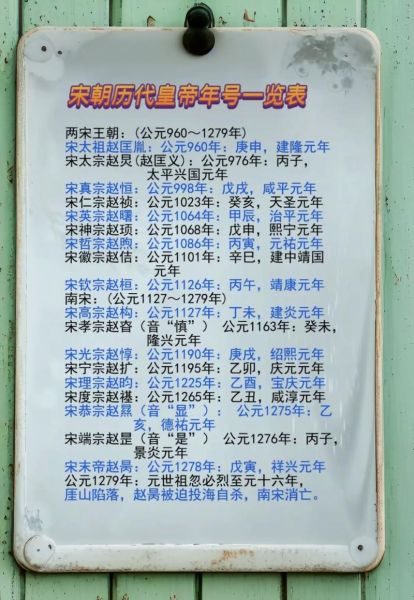 宋朝历代皇帝年号一览表
两宋王朝：(公元960～1279年)
宋太祖赵匡胤：公元960年：庚申，建隆元年
宋太宗赵炅(赵匡义)：公元976年：丙子，
太平兴国元年
宋真宗赵恒：公元998年：戊戌，咸平元年
宋仁宗赵祯：公元1023年：癸亥，天圣元年
宋英宗赵曙：公元1064年：甲辰，治平元年
宋神宗赵顼：公元1068年：戊申，熙宁元年
宋哲宗赵煦：公元1086年：丙寅，元祐元年
宋徽宗赵佶：公元1101年：辛巳，建中靖国
元年
宋钦宗赵桓：公元1126年：丙午，靖康元年
南宋：(公元1127～1279年)
宋高宗赵构：公元1127年：丁未，建炎元年
宋孝宗赵昚（音“慎”） 公元1163年：癸未，
隆兴元年
宋光宗赵惇：公元1190年：庚戌，绍熙元年
宋宁宗赵扩：公元1195年：乙卯，庆元元年
宋理宗赵昀：公元1225年：乙酉，宝庆元年
宋度宗赵禥：公元1265年：乙丑，咸淳元年
宋恭宗赵㬎（音“显”）： 公元1275年：乙
亥，德祐元年
宋端宗赵昰（音“是”） 公元1276年：丙子，
景炎元年
宋末帝赵昺：公元1278年：戊寅，祥兴元年
公元1279年：元世祖忽必烈至元十六年，
厓山陷落，赵昺被迫投海自杀，南宋消亡。